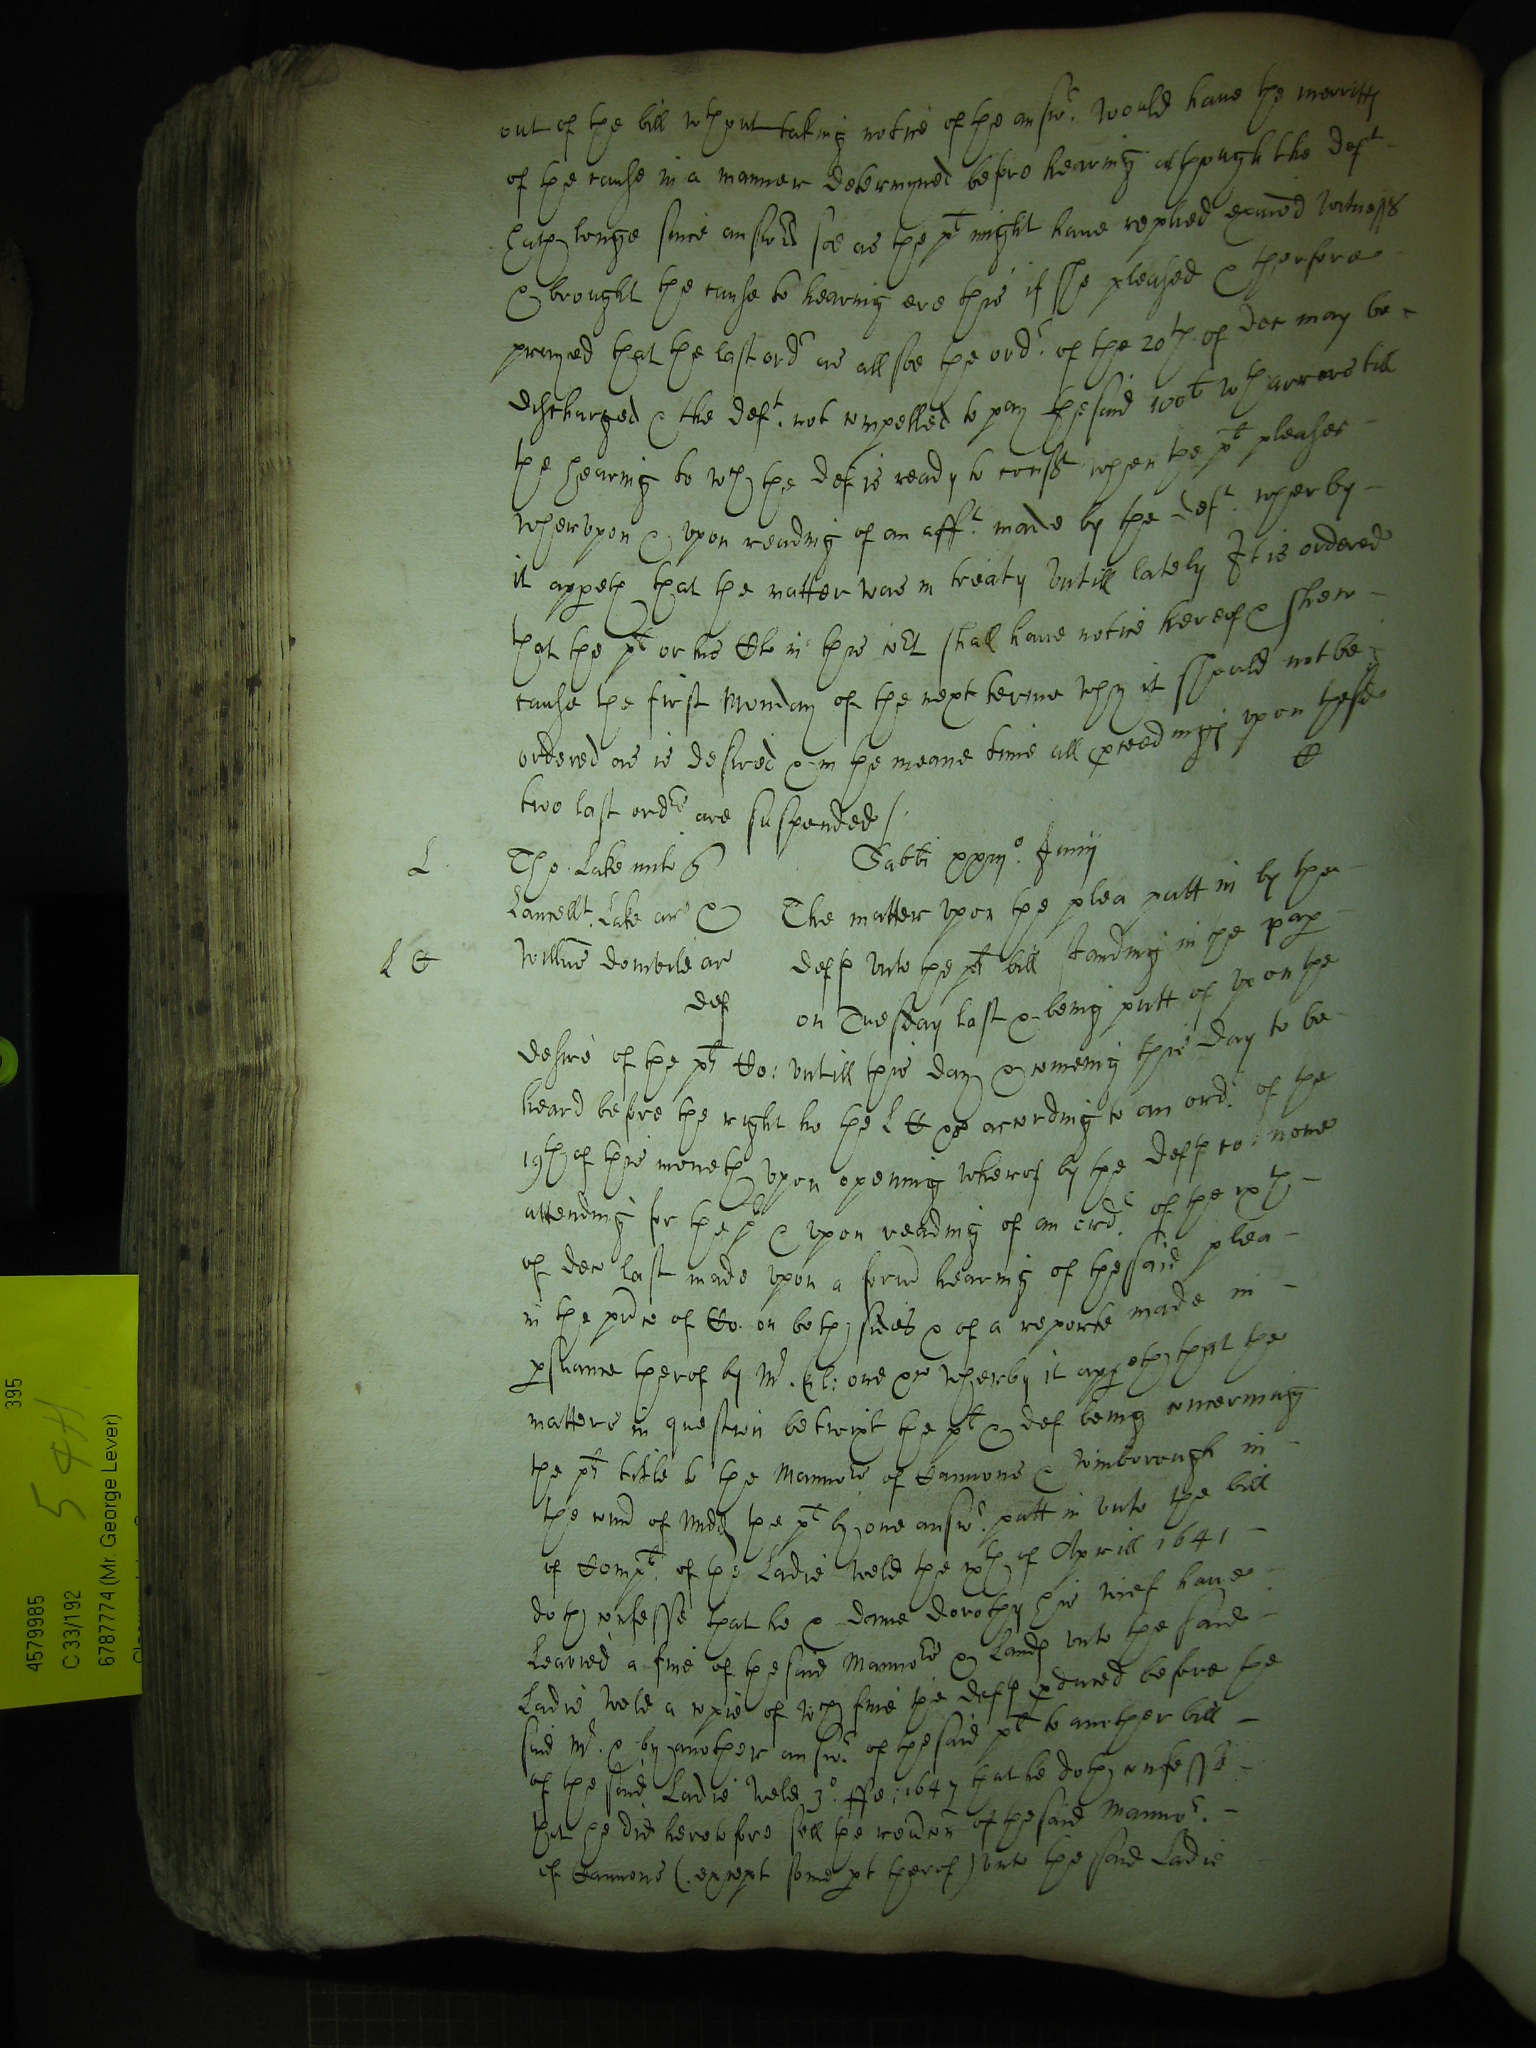 out of the bill wthout taking notice of the answr. would have the merritts
of the cause in a manner determyned before hearing although the deft
hath longe since answed soe as the pt might have replied exaied witness
& brought the cause to hearing ere this if she pleased & therfore
prayed that the last ordr as allsoe the ordr. of the 20th of dec may be
discharged & the deft. not compelled to pay the said 100l wth arreres till
the hearing to wch the def is ready to const when the pt pleases
wherupon & upon reading of an afft. made by the deft. wherby
it appeth that the matter was in treaty untill lately It is ordered
that the pt or his Clo in this cot shall have notice hereof & shew
cause the first Monday of the next terme why it should not be
ordered as is desired & in the meane time all pceedings upon these
two last ordrs are suspended /
L Tho. Lake miles Sabti xxiijo. Januij
Lancellt. Lake ar & The matter upon the plea putt in by the
L C Willus ar defts unto the pts bill standing in the pap
def on Tuesday last & being putt of upon the
desire of the pts Co: untill this day & comeing this day to be
heard before the right ho the L C &c according to an ordr. of the
19th of this moneth upon opening wherof by the defts co: none
attending for the pt & upon reading of an ordr. of the xth
of dec last made upon a formr hearing of the said plea
in the prnce of Co. on both sides & of a reporte made in
psuance therof by Mr. one &c wherby it appeth that the
matters in question betwixt the pt & def being concerning
the pts title to the Mannors of Cannons & Wimborough in
the com of Midd the pt by one answr. putt in unto the bill
of Compt. of the Ladie Weld the of Aprill 1641
doth confesse that he & dame Dorothy his wief have
Leavied a fine of the said Mannors & Lands unto the said
Ladie Weld a copie of wch fine the defts pduced before the
said Mr. & by another answr. of the said pt to another bill
of the said Ladie Weld 3o. ffe: 1647 that he doth confesse
that he did heretofore sell the revercon of the said Mannor.
of Cannons (except some pt therof) unto the said Ladie
4579985
C 33/192
6787774 (Mr. George Lever)
395